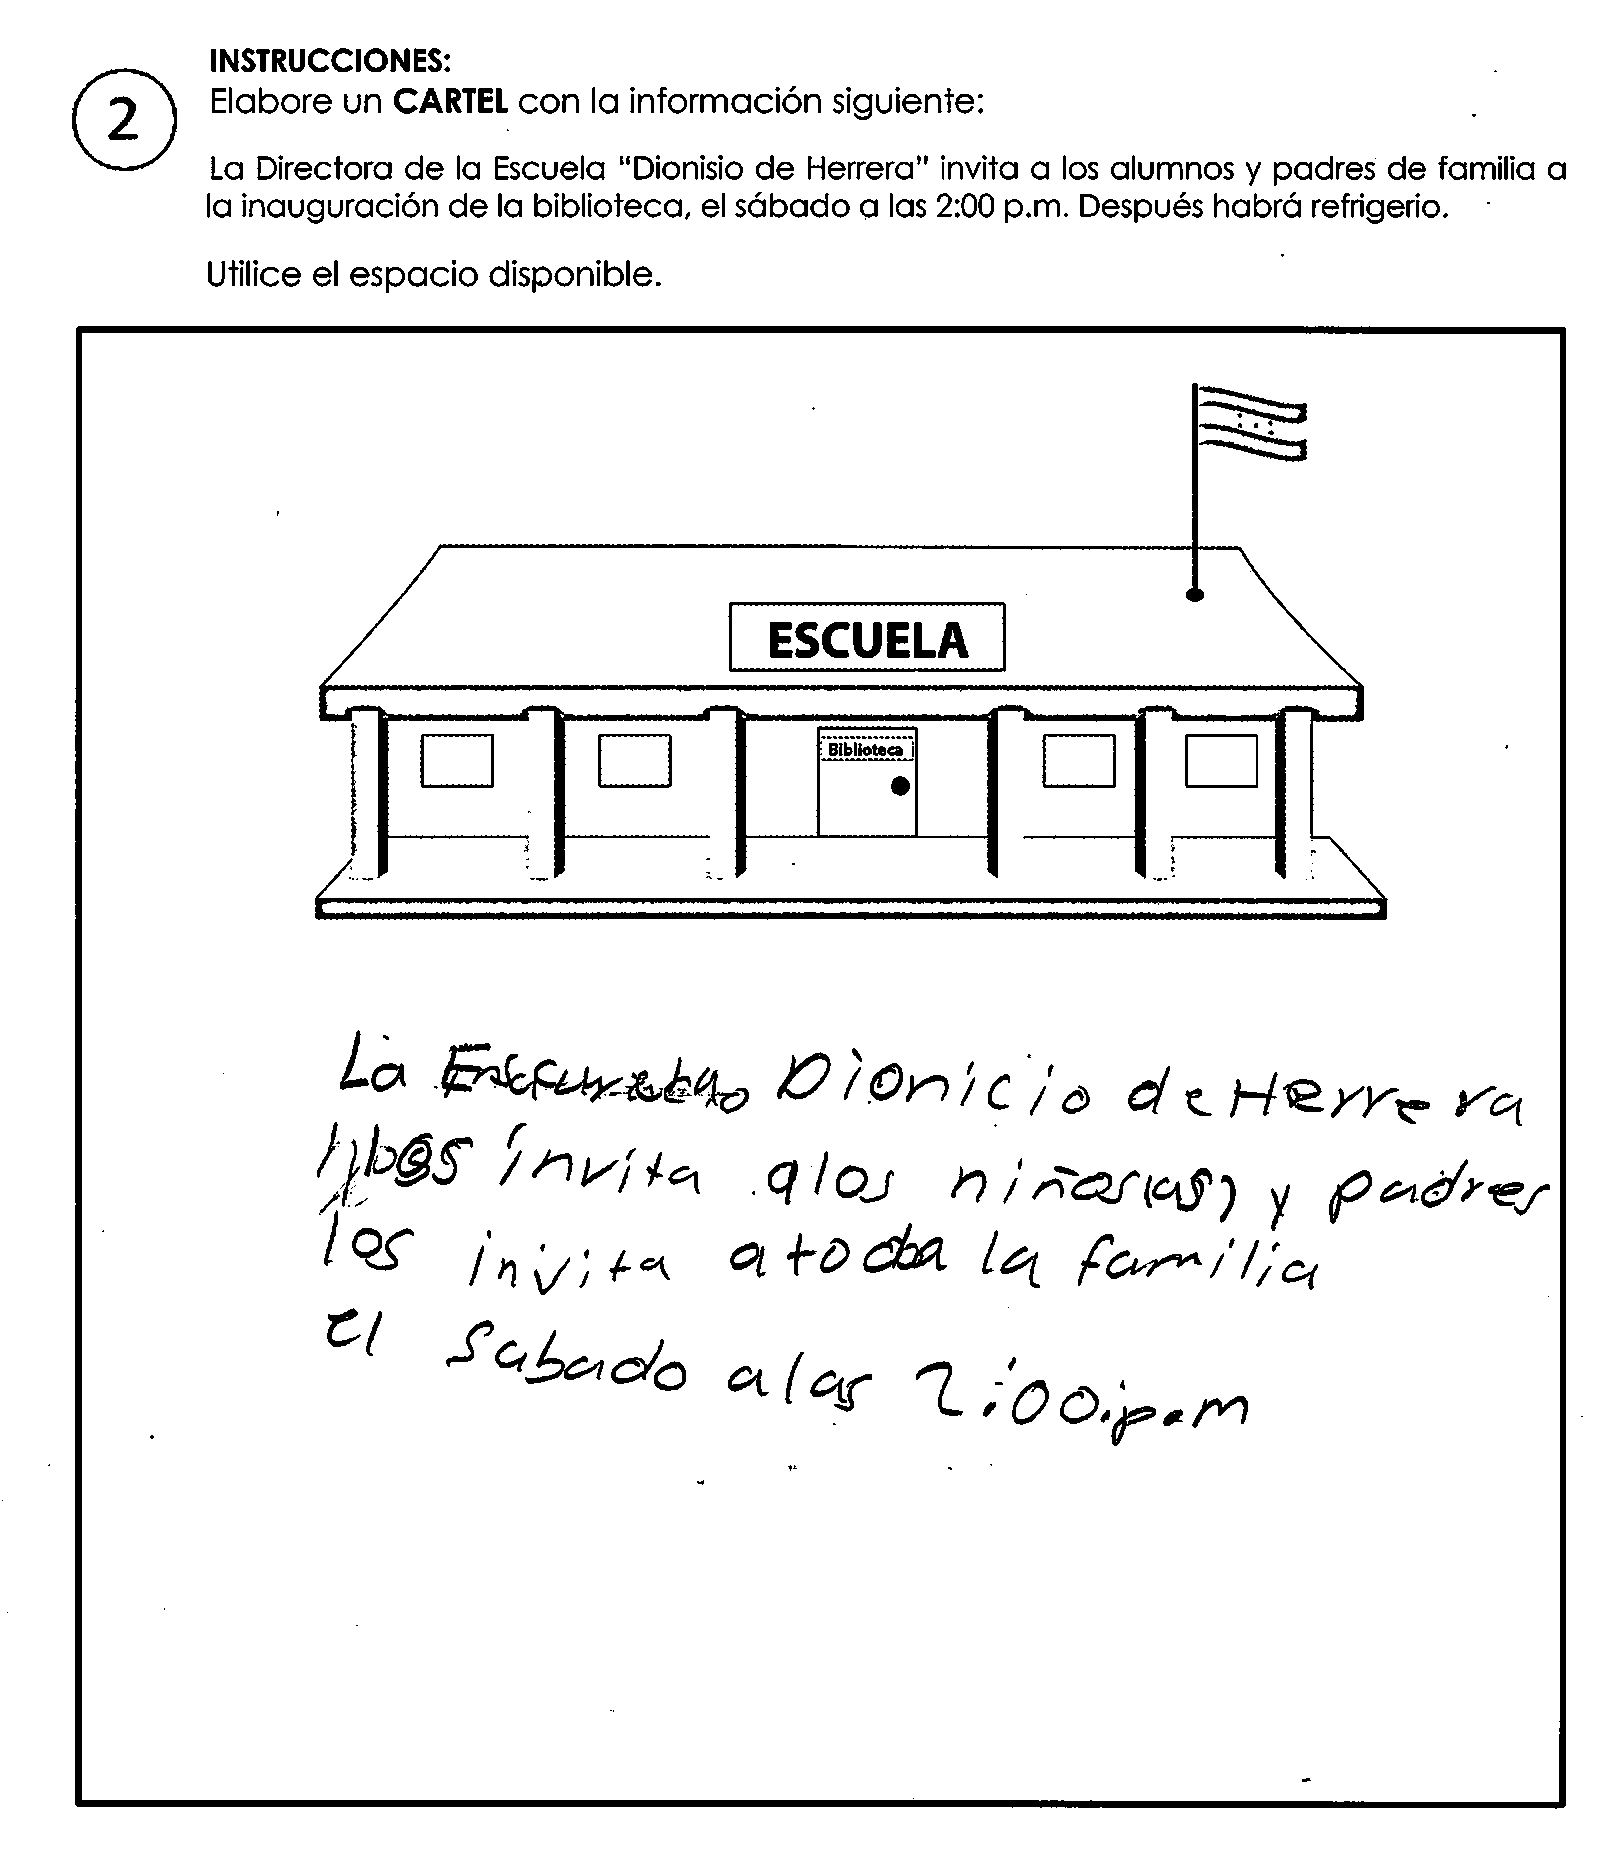 INSTRUCCIONES:
2
Elabore un CARTEL con la información siguiente:
La Directora de la Escuela "Dionisio de Herrera" invita a los alumnos y padres de familia a
la inauguración de la biblioteca, el sábado a las 2:00 p.m. Después habrá refrigerio.
Utilice el espacio disponible.
ESCUELA
Biblioteca
La Dionicio de Herrera
invita a los niños(as) y padres
los invita a toda la familia
el sabado a las 2:00:p.m